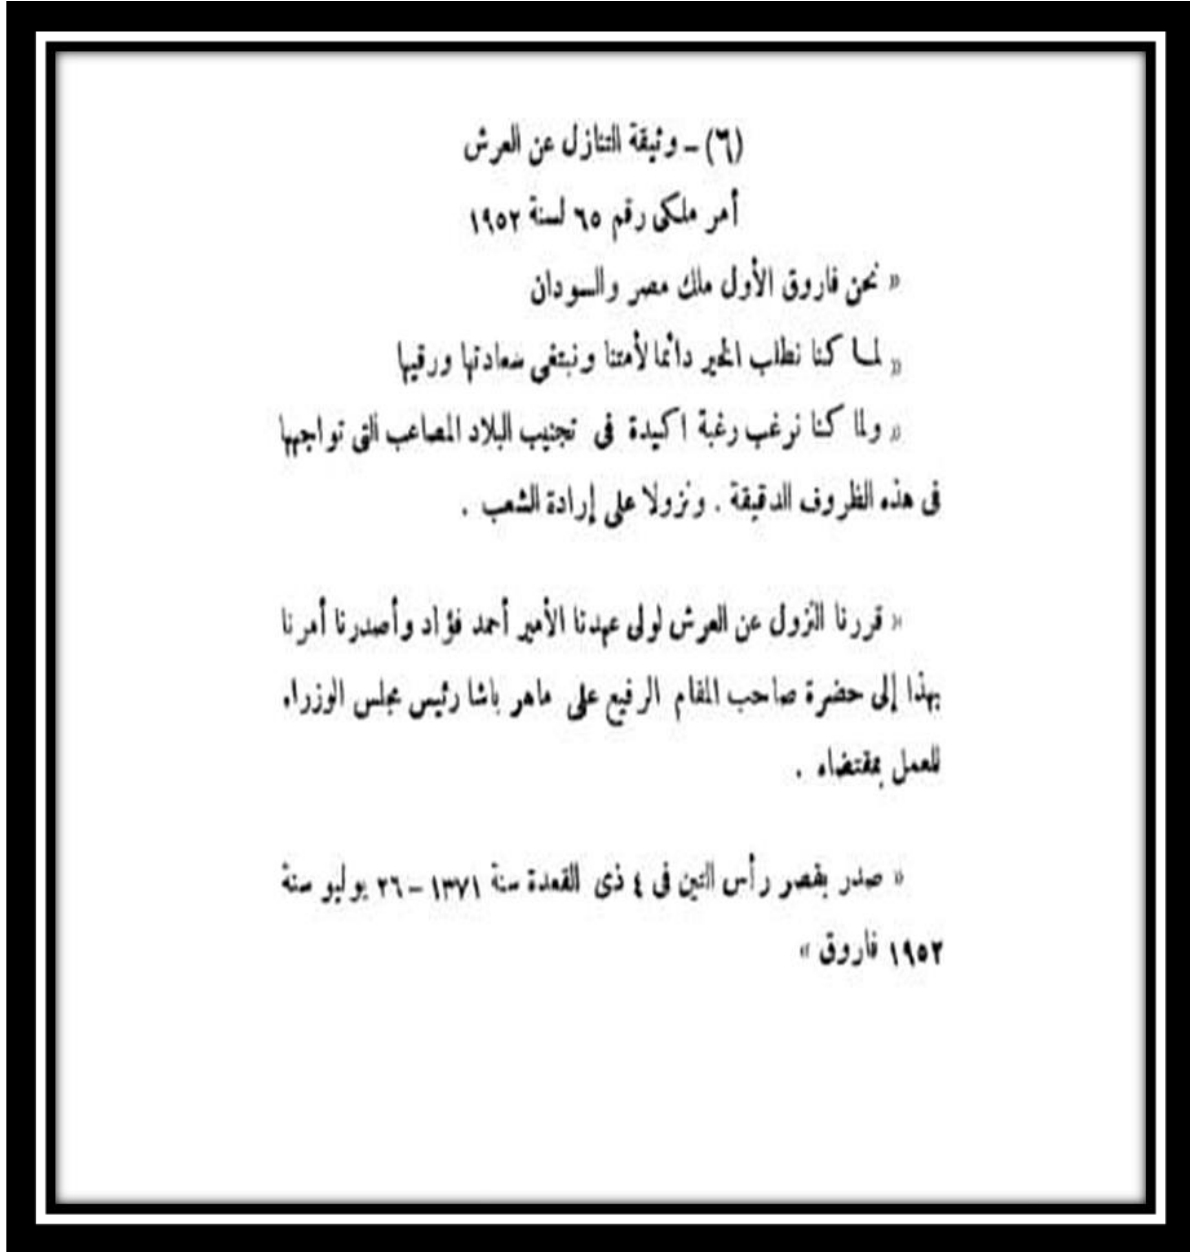 (٦) – وثيقة التنازل عن العرش
أمر ملكى رقم ٦٥ لسنة ١٩٥٢
« نحن فاروق الأول ملك مصر والسودان
« لما كنا نطلب الخير دائما لأمتنا ونبتغى سعادتها ورقيها
« ولما كنا نرغب رغبة اكيدة فى تجنيب البلاد المصاعب التى تواجهها
فى هذه الظروف الدقيقة . ونزولا على إرادة الشعب .
« قررنا النزول عن العرش لولى عهدنا الأمير أحمد فؤاد وأصدرنا أمرنا
بهذا إلى حضرة صاحب المقام الرفيع على ماهر باشا رئيس مجلس الوزراء
للعمل بمقتضاه .
« صدر بقصر رأس التين فى ٤ ذى القعدة سنة ١٣٧١ – ٢٦ يوليو سنة
١٩٥٢ فاروق »